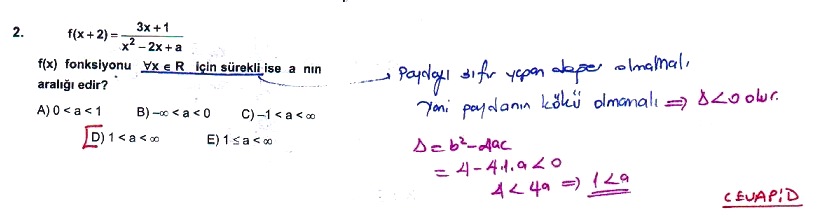 2. f(x+2) = 3x+1 / x² – 2x + a
f(x) fonksiyonu ∀x ∈ R için sürekli ise a nın
aralığı edir?
A) 0 < a < 1 B) –∞ < a < 0 C) –1 < a < ∞
D) 1 < a < ∞ E) 1 ≤ a < ∞
Paydayı sıfır yapan değer olmamalı,
Yani paydanın kökü olmamalı ⇒ Δ<0 olur.
Δ = b² – 4ac
= 4 – 4.1.a < 0
4 < 4a ⇒ 1 < a
CEVAP: D